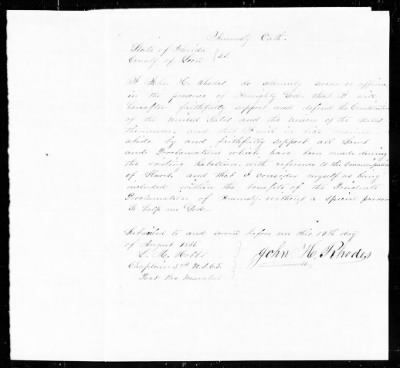 Amnesty Oath.
State of Florida
County of } ss.
I John H. Rhodes do solemnly swear or affirm
in the presence of Almighty God that I will
hereafter faithfully support and defend the Constitution
of the United States and the Union of the States
thereunder, and that I will in like manner
abide by and faithfully support all Laws
and Proclamations which have been made during
the existing Rebellion with reference to the Emancipation
of Slaves and that I consider myself as being
included within the benefits of the President's
Proclamation of Amnesty without a special pardon
So help me God.
Subscribed to and sworn before me this 19th day
of August 1866
John H. Rhodes
Chaplain U.S.C.T.